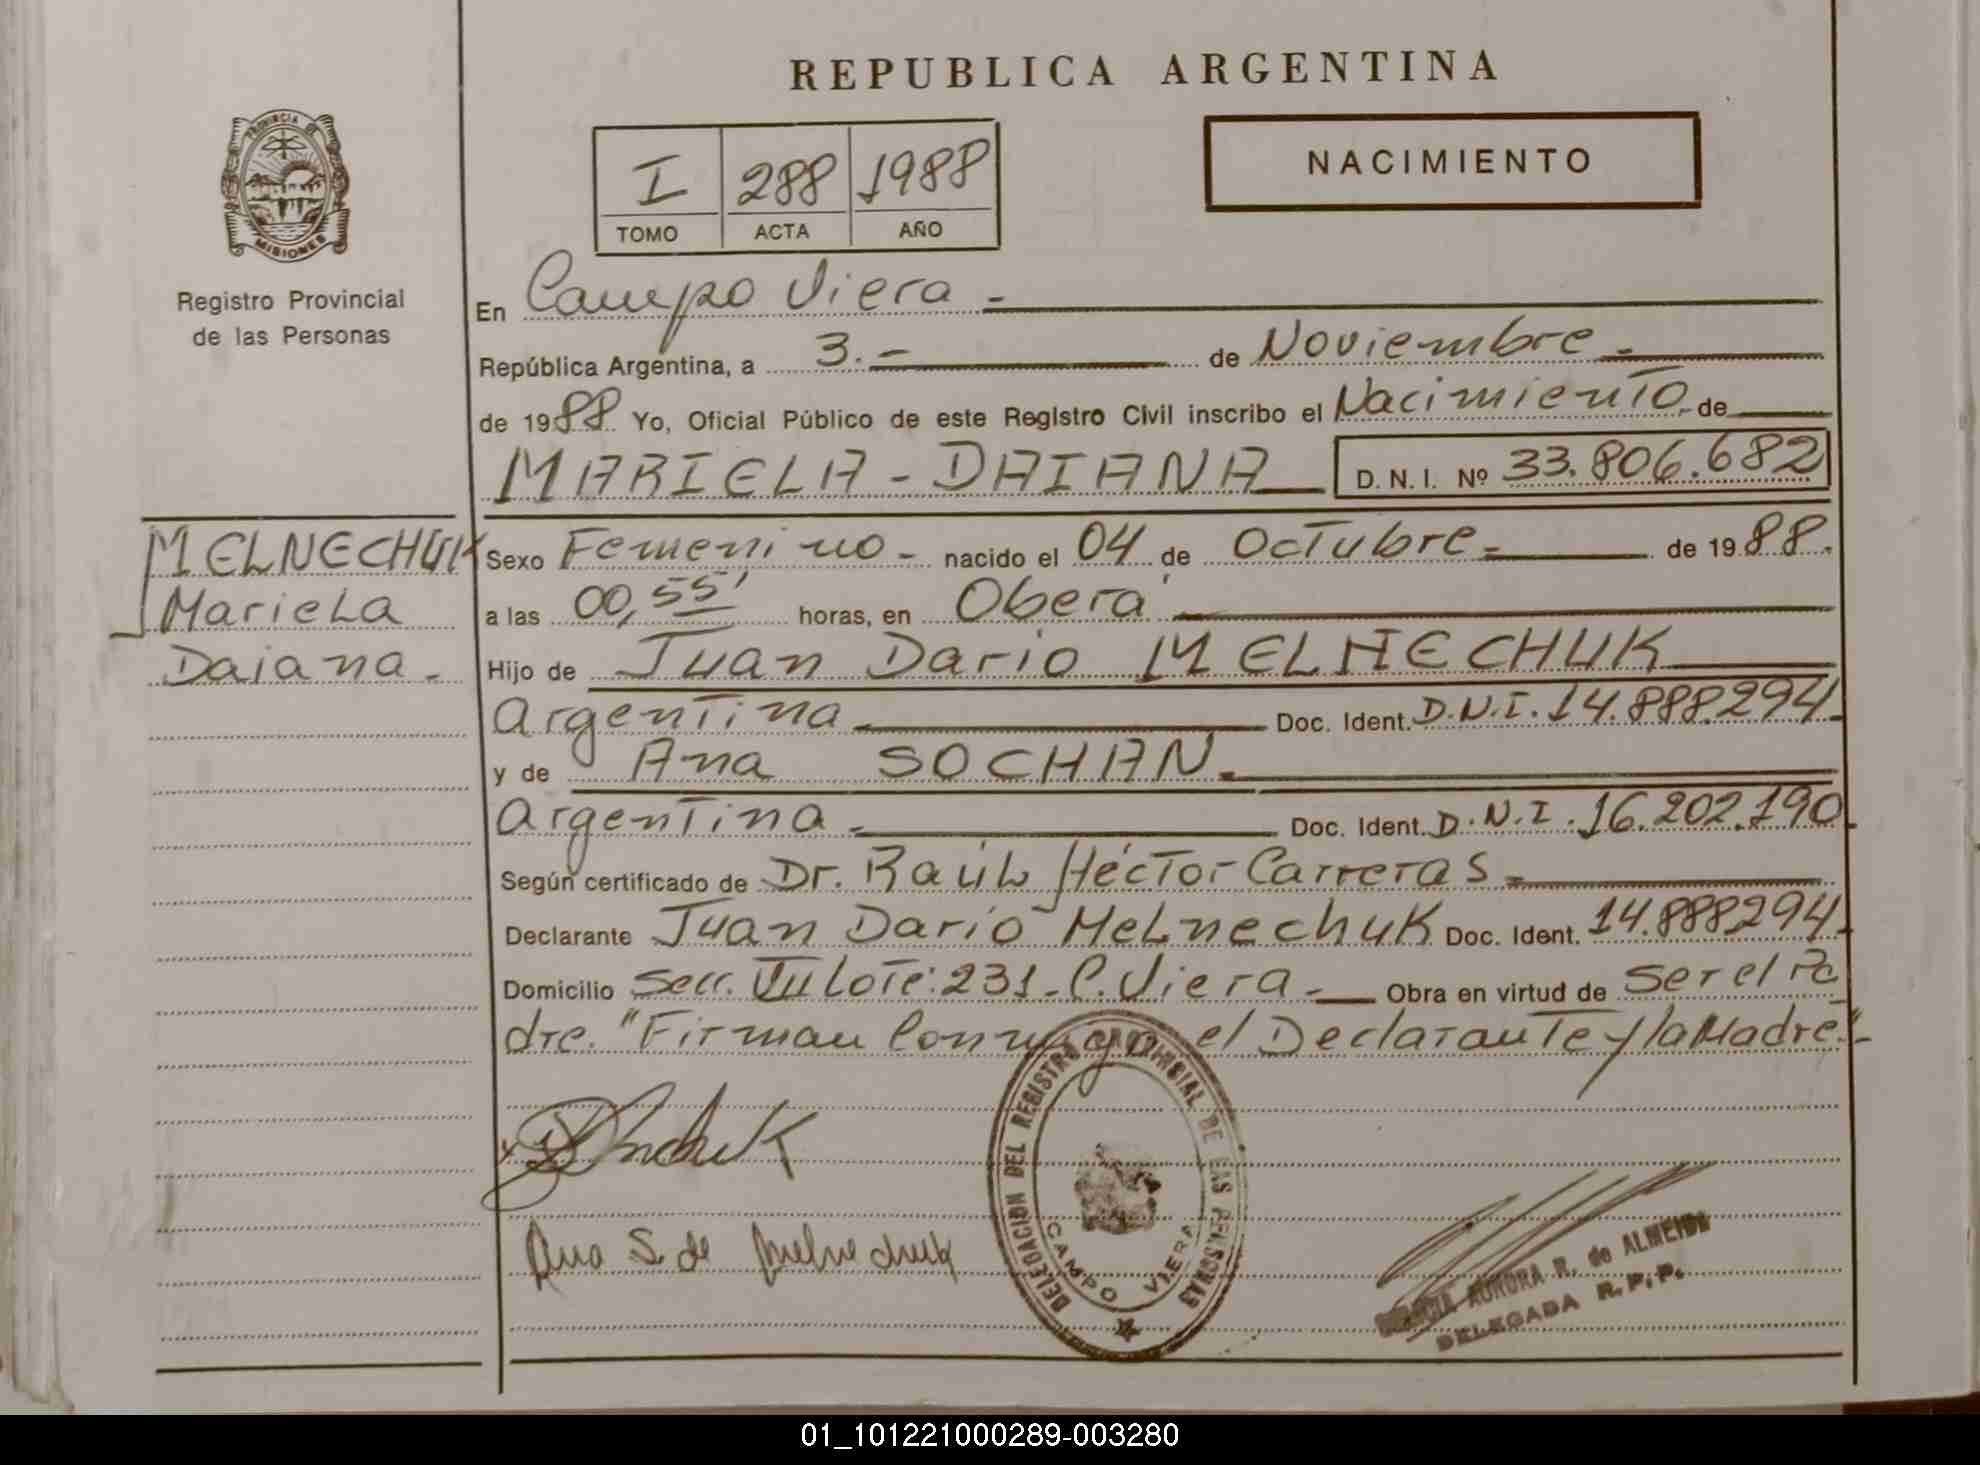 REPUBLICA ARGENTINA
PROVINCIA DE
MISIONES
Registro Provincial
de las Personas
I 288 1988
TOMO ACTA AÑO
NACIMIENTO
En Campo Viera -
República Argentina, a 3.- de Noviembre -
de 1988 Yo, Oficial Público de este Registro Civil inscribo el Nacimiento de
MARIELA - DAIANA D. N. I. Nº 33.806.682
MELNECHUK
Mariela
Daiana -
Sexo Femenino - nacido el 04 de Octubre = de 1988.
a las 00,55' horas, en Oberá
Hijo de Juan Dario MELNECHUK
Argentina Doc. Ident. D.N.I. 14.888.294-
y de Ana SOCHAN.
Argentina - Doc. Ident. D.N.I. 16.202.190
Según certificado de Dr. Raúl Héctor Carreras -
Declarante Juan Darío Melnechuk Doc. Ident. 14.888294-
Domicilio Secc. VII Lote: 231 - C. Viera - Obra en virtud de ser el Pa
dre. "Firman Conmigo el Declarante y la Madre."-
Ana S. de Melnechuk
DELEGACION DEL REGISTRO PROVINCIAL DE LAS PERSONAS
CAMPO VIERA
AURORA R. de ALMEIDA
DELEGADA R.P.P.
01_101221000289-003280